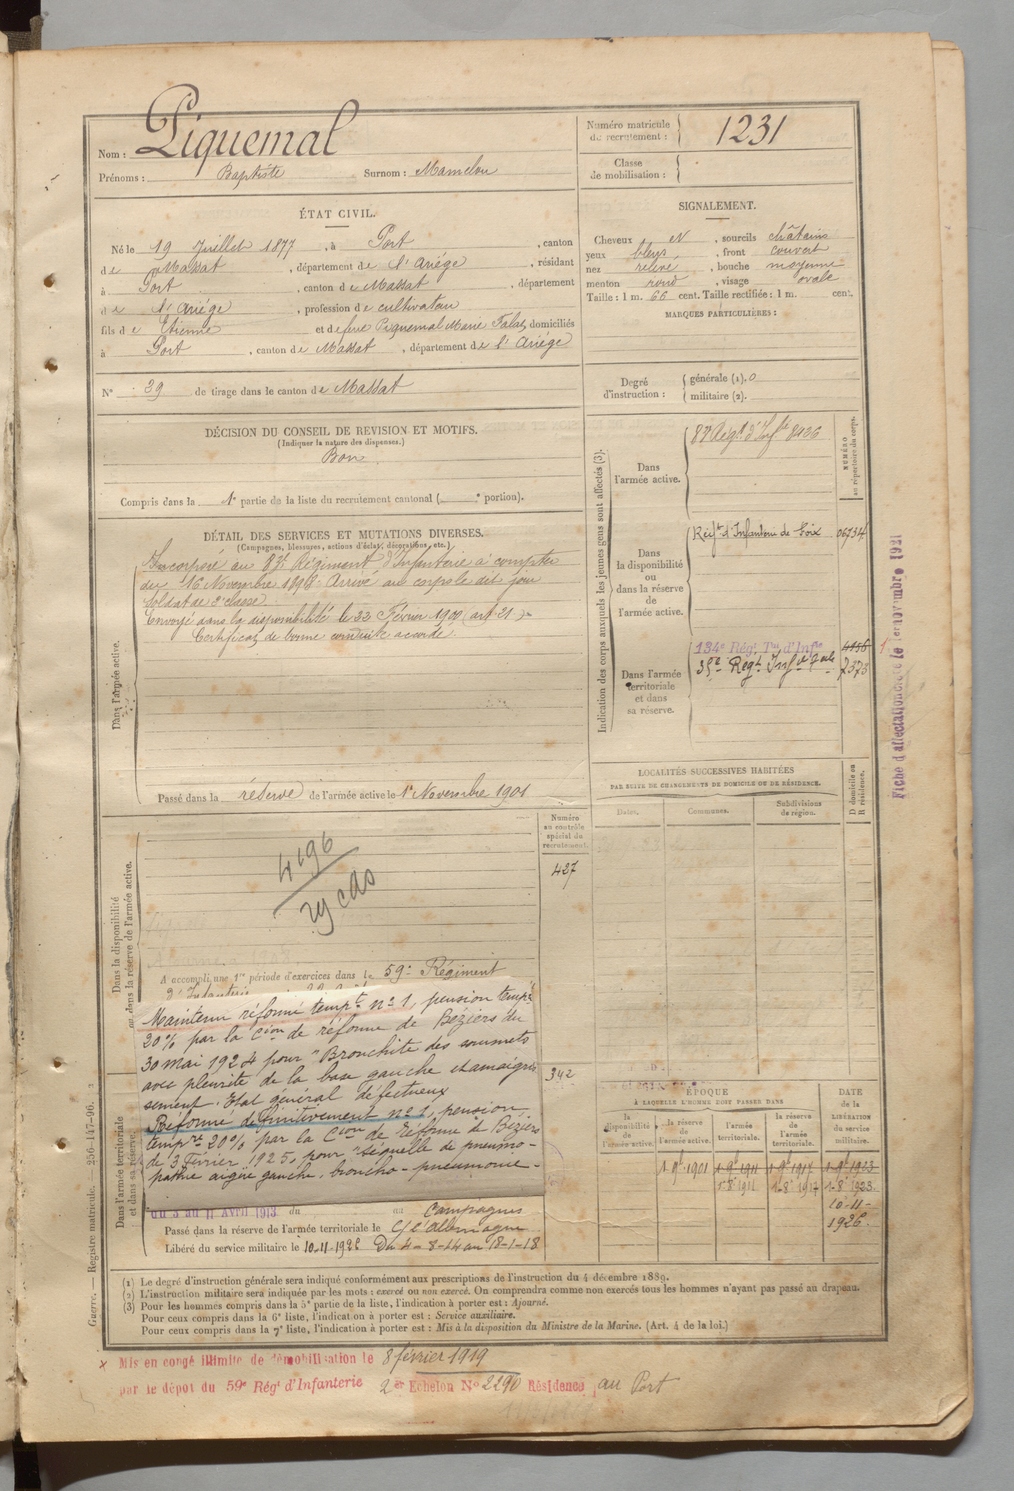 Nom : Piquemal
Prénoms : Baptiste Surnom : Mamelou
Numéro matricule de recrutement : 1231
Classe de mobilisation :
ÉTAT CIVIL.
Né le 19 Juillet 1877, à Port, canton
de Massat, département de l'Ariége, résidant
à Port, canton de Massat, département
de l'Ariége, profession de cultivateur
fils de Etienne et de feue Piquemal Marie domiciliés
à Port, canton de Massat, département de l'Ariége
N° 39 de tirage dans le canton de Massat
SIGNALEMENT.
Cheveux N, sourcils châtains
yeux bleus, front couvert
nez relevé, bouche moyenne
menton rond, visage ovale
Taille : 1 m. 66 cent. Taille rectifiée : 1 m. cent.
MARQUES PARTICULIÈRES :
Degré d'instruction : générale (1). 0
militaire (2).
DÉCISION DU CONSEIL DE REVISION ET MOTIFS.
(Indiquer la nature des dispenses.)
Bon
Compris dans la 1e partie de la liste du recrutement cantonal ( e portion).
DÉTAIL DES SERVICES ET MUTATIONS DIVERSES.
(Campagnes, blessures, actions d'éclat, décorations, etc.)
Dans l'armée active.
Incorporé au 83e Régiment d'Infanterie à compter
du 16 Novembre 1898 Arrivé au corps le dit jour
Soldat de 2e classe
Envoyé dans la disponibilité le 22 Février 1900 (art 21)
Certificat de bonne conduite accordé
Passé dans la réserve de l'armée active le 1er Novembre 1901
Indication des corps auxquels les jeunes gens sont affectés (3).
NUMÉRO au répertoire du corps.
Dans l'armée active.
83 Régt d'Infie 8426
Dans la disponibilité ou dans la réserve de l'armée active.
Régt d'Infanterie de Foix 06734
Dans l'armée territoriale et dans sa réserve.
134e Régt Tal d'Infie
35e Regt Infie 7373
Fiche d'affectation créée le 1er novembre 1921
LOCALITÉS SUCCESSIVES HABITÉES
PAR SUITE DE CHANGEMENTS DE DOMICILE OU DE RÉSIDENCE.
Dates. Communes. Subdivisions de région. D domicile ou R résidence.
Numéro au contrôle spécial du recrutement.
427
342
Dans la disponibilité ou dans la réserve de l'armée active.
4196
A accompli une 1re période d'exercices dans le 59e Régiment
d'Infanterie
Maintenu réformé tempre n° 1, pension tempre
20% par la Cion de réforme de Béziers du
30 mai 1924 pour "Bronchite des sommets
avec pleurite de la base gauche et amaigris
sement. Etat général défectueux
Réformé définitivement n° 1, pension
tempre 20% par la Cion de Réforme de Béziers
de 3 Février 1925, pour séquelle de pneumo-
pathie aigüe gauche, broncho-pneumonie-
Dans l'armée territoriale et dans sa réserve.
du 3 au 11 Avril 1913. du au
Campagnes
Passé dans la réserve de l'armée territoriale le C/ l'Allemagne
Libéré du service militaire le 10-11-1926 Du 4-8-14 au 18-1-18
ÉPOQUE
À LAQUELLE L'HOMME DOIT PASSER DANS
la disponibilité de l'armée active. la réserve de l'armée active. l'armée territoriale. la réserve de l'armée territoriale.
DATE de la LIBÉRATION du service militaire.
1-9bre 1901 1-9bre 1911 1-9bre 1917 1-9bre 1923
1-8bre 1911 1-8bre 1917 1-8bre 1923
10-11-1926
(1) Le degré d'instruction générale sera indiqué conformément aux prescriptions de l'instruction du 4 décembre 1889.
(2) L'instruction militaire sera indiquée par les mots : exercé ou non exercé. On comprendra comme non exercés tous les hommes n'ayant pas passé au drapeau.
(3) Pour les hommes compris dans la 5e partie de la liste, l'indication à porter est : Ajourné.
Pour ceux compris dans la 6e liste, l'indication à porter est : Service auxiliaire.
Pour ceux compris dans la 7e liste, l'indication à porter est : Mis à la disposition du Ministre de la Marine. (Art. 4 de la loi.)
Guerre. — Registre matricule. — 256-147-96.
x Mis en congé illimité de démobilisation le 8 février 1919
par le dépot du 59e Régt d'Infanterie 2er Echelon N° 2290 Résidence au Port